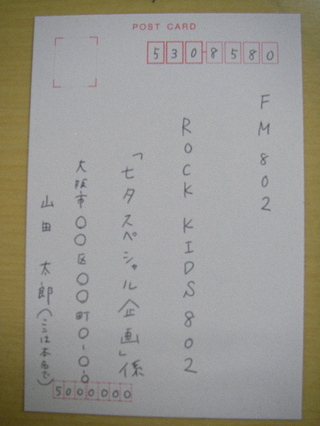 POST CARD
530-8580
FM802
ROCK KIDS 802
「七夕スペシャル企画」係
大阪市〇〇区〇〇町〇-〇-〇
山田 太郎(ここは本名で)
5000000